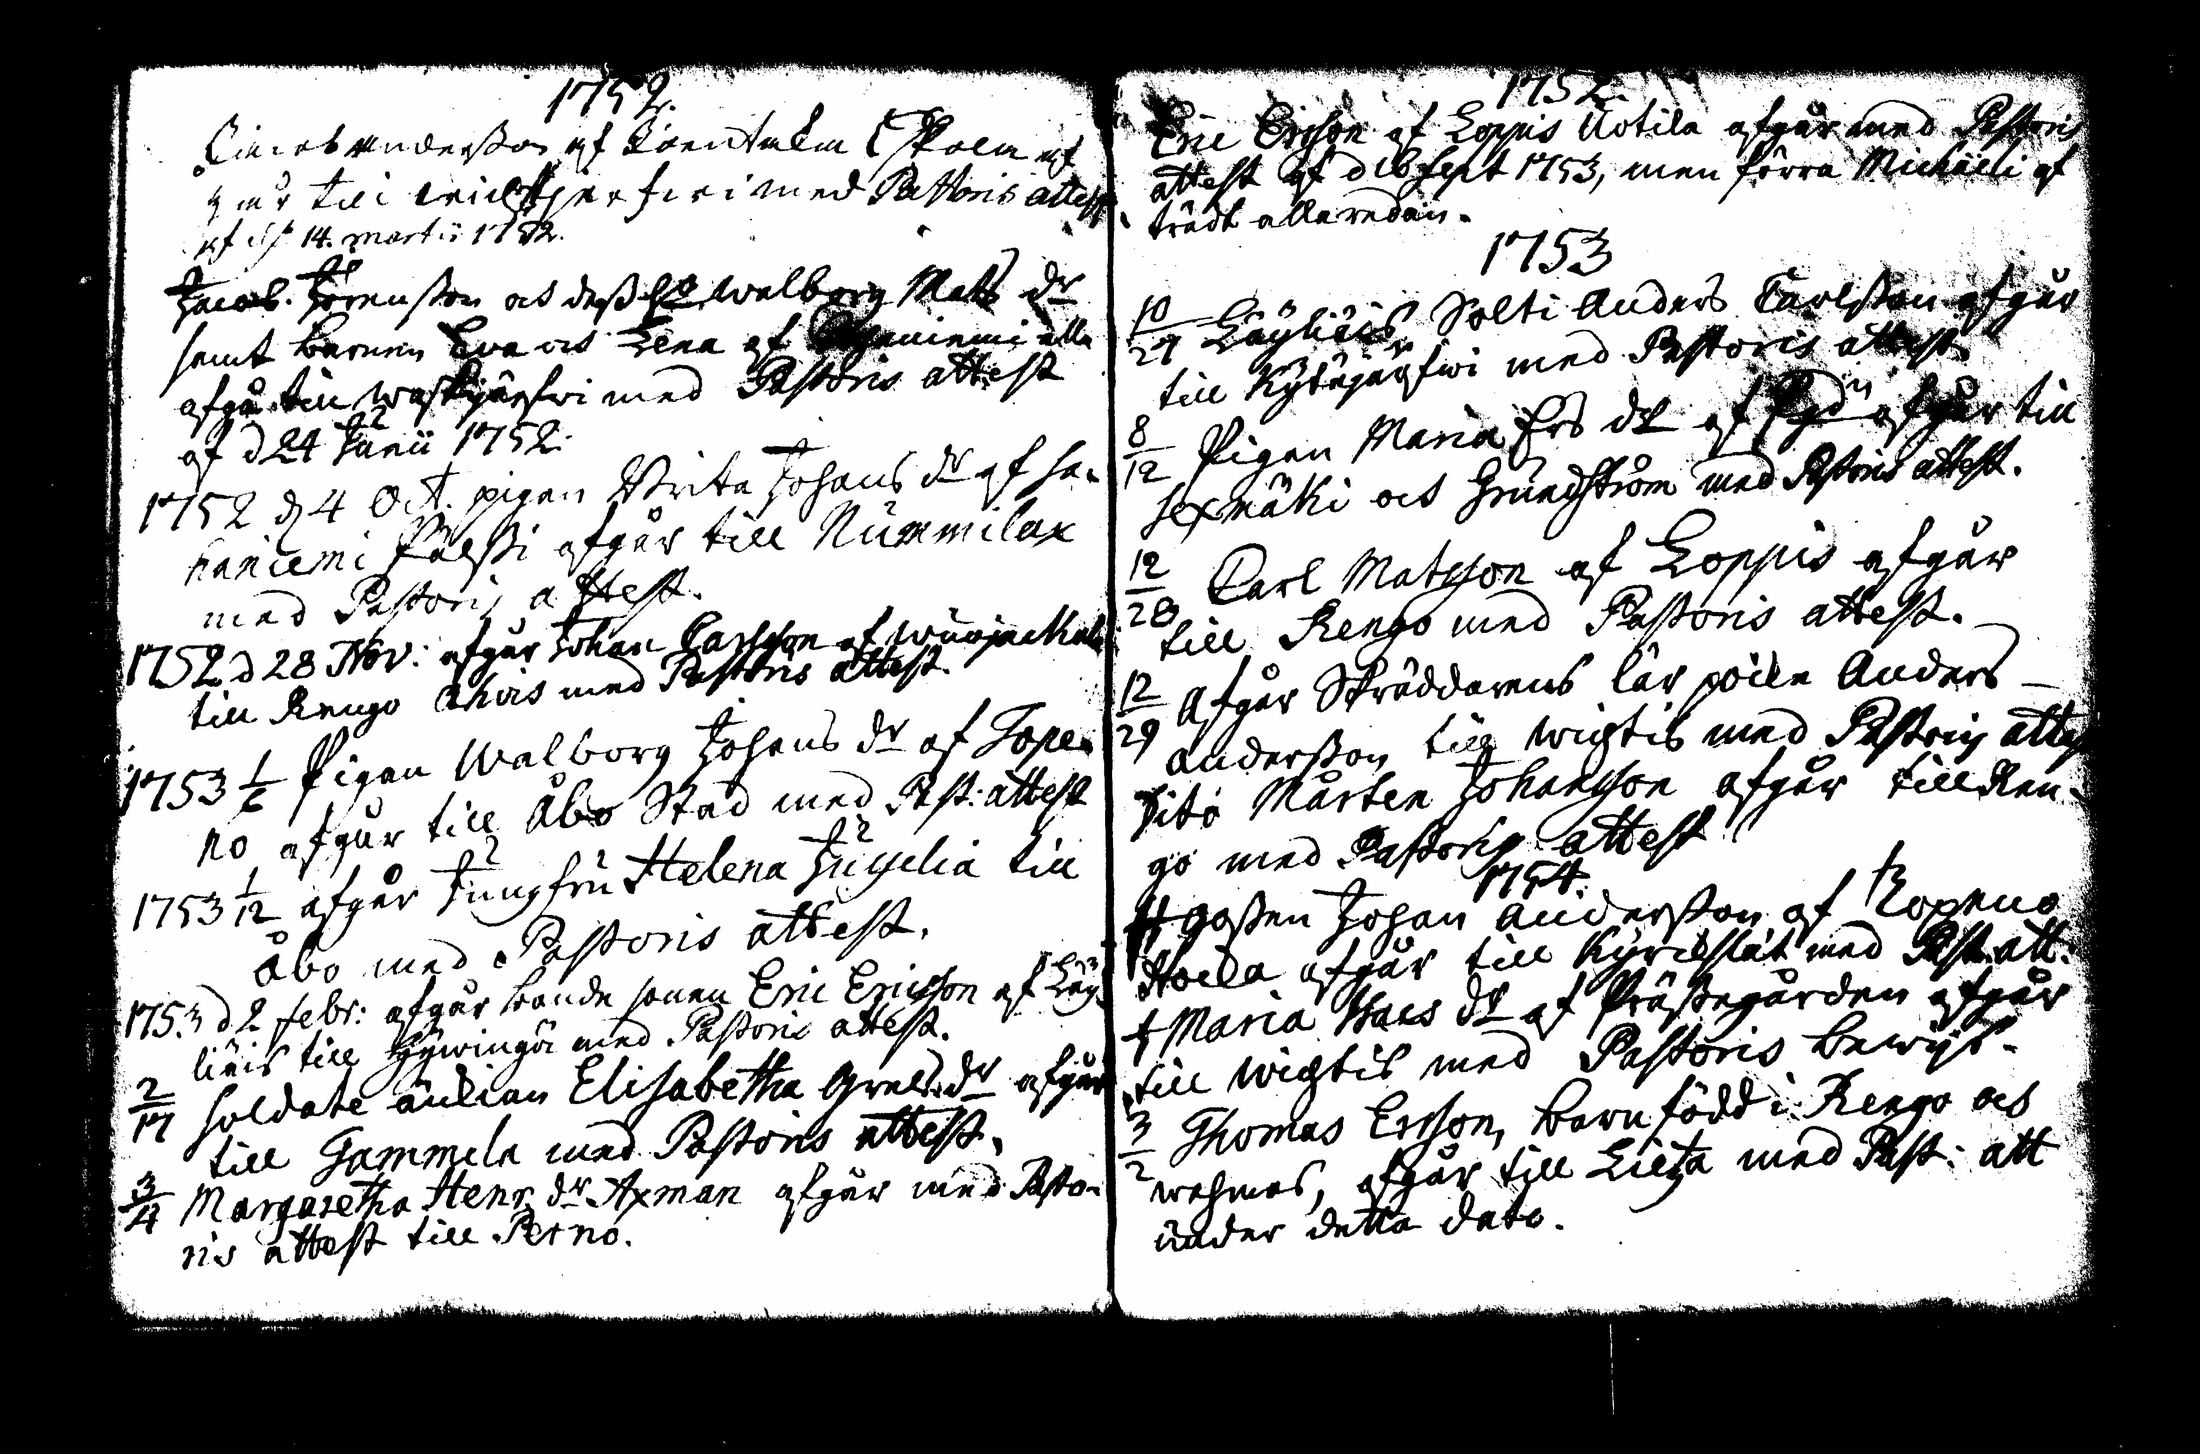 1752.
Anderßon af
går till med Pastoris attest
af d. 14. martii 1752.
Jacob. Jörenßon och deß h:o Walborg Matts dr
samt barnen Eva och Lena af alla
afgå till med Pastoris attest
af d 24 Junii 1752.
1752 d 4 Oct. pigan Brita Johans dr af Ha-
kaniemi afgår till Nummilax
med Pastoris attest.
1752 d 28 Nov: afgår Johan Carlsson af
till Rengo Ahois med Pastoris attest.
1753 1/6 Pigan Walborg Johans dr af Tope-
no afgår till Åbo Stad med Past: attest
1753 1/12 afgår Jungfru Helena till
Åbo med Pastoris attest.
1753 d 2 febr: afgår bonde sonen Eric Ericsson af Läy-
liäis till Hywingä med Pastoris attest.
2/17 Soldate änkian Elisabetha Grels dr afgår
till Tammela med Pastoris attest.
3/4 Margaretha Henr. dr Axman afgår med Pasto-
ris attest till Perno.
1752.
Eric Ersson af Loppis Uotila afgår med Pastoris
attest af d 16 Sept 1753, men förra Michaëli af
trädt allaredan.
1753
10/29 Läyliäis Solti Anders Carlßon afgår
till Kytäjärfwi med Pastoris attest.
8/12 Pigan Maria Ers dr af afgår till
och Grundström med Pastoris attest.
12/28 Carl Matsson af Loppis afgår
till Rengo med Pastoris attest.
12/29 Afgår Skräddarens lär poike Anders
Anderßon till Wigtis med Pastoris attest
Dito Mårten Johansson afgår till Ren-
go med Pastoris attest
1754.
Goßen Johan Anderßon af Topeno
afgår till Kyrckslät med Past. att.
Maria dr af Prästegården afgår
till Wigtis med Pastoris bewys.
3/2 Thomas Ersson, barn född i Rengo och
wahmas, afgår till med Past: att
under detta dato.